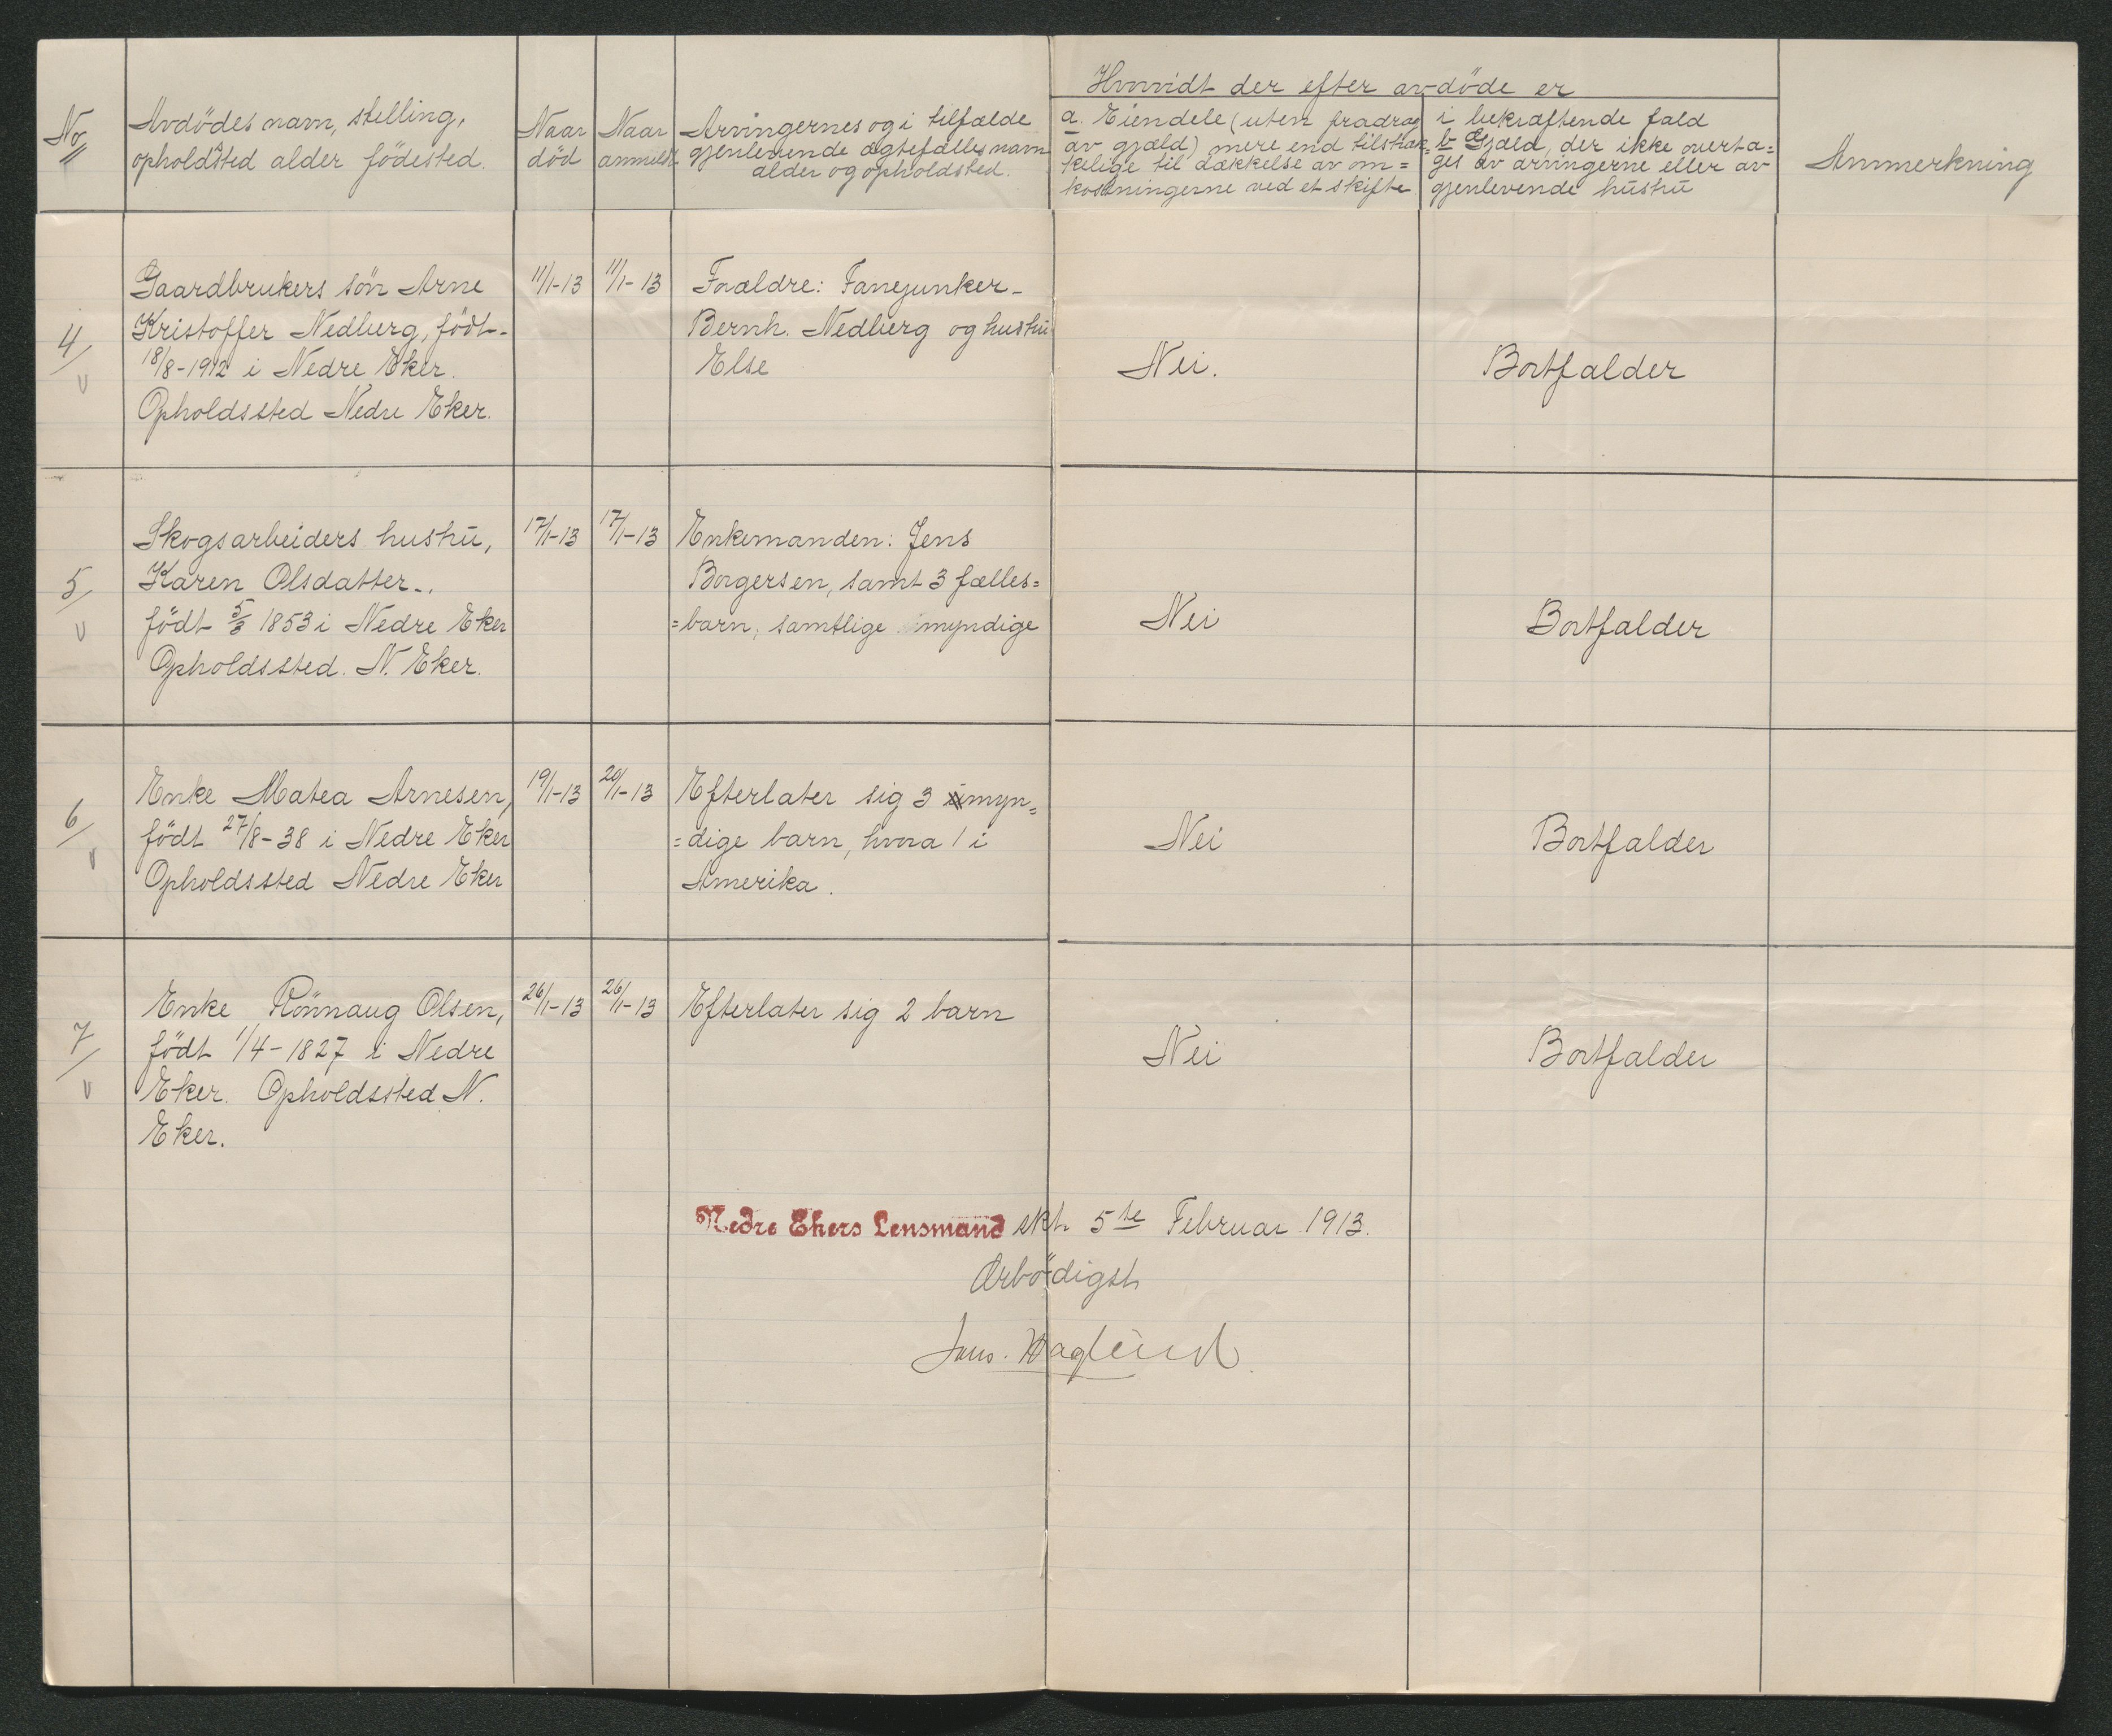 No
Avdödes navn, stelling,
opholdsted alder födested.
Naar
död
Naar
anmeldt
Arvingernes og i tilfælde
gjenlevende ægtefælles navn
alder og opholdsted.
Hvorvidt der efter avdöde er
a. Eiendele (uten fradrag
av gjæld) mere end tilstræk=
kelige til dækkelse av om=
kostningerne ved et skifte
i bekræftende fald
b Gjæld, der ikke overta=
ges av arvingerne eller av
gjenlevende hustru
Anmerkning
4/
v
Gaardbrukers sön Arne
Kristoffer Nedberg, födt-
18/8-1912 i Nedre Eker.
Opholdssted Nedre Eker.
11/1-13
11/1-13
Forældre: Fanejunker-
Bernh. Nedberg og hustru
Else
Nei.
Bortfalder
5/
v
Skogsarbeiders hustru,
Karen Olsdatter-.
födt 5/3 1853 i Nedre Eker
Opholdssted. N. Eker.
17/1-13
17/1-13
Enkemanden: Jens
Borgersen, samt 3 fælles=
=barn, samtlige myndige
Nei
Bortfalder
6/
v
Enke Matea Arnesen,
födt 27/8-38 i Nedre Eker
Opholdssted Nedre Eker
19/1-13
20/1-13
Efterlater sig 3 myn=
=dige barn, hvora 1 i
Amerika.
Nei
Bortfalder
7/
v
Enke Rönnaug Olsen,
födt 1/4-1827 i Nedre
Eker. Opholdssted N.
Eker.
26/1-13
26/1-13
Efterlater sig 2 barn
Nei
Bortfalder
Nedre Ekers Lensmand skt 5te Februar 1913.
Ærbödigst